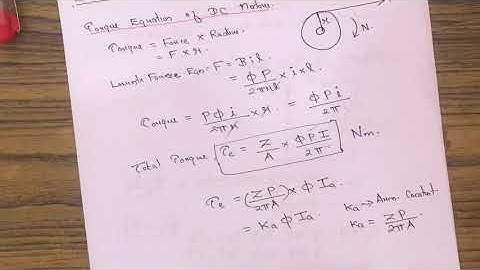 Torque Equation of DC Motor
Torque = Force × Radius
= F × r.
Lorentz Force Eqn = F = Bil
= ΦP / 2πrl × i × l
Torque = PΦi / 2πr × r = ΦPi / 2π
Total Torque, τe = Z/A × ΦPI / 2π Nm.
τe = (ZP / 2πA) × Φ Ia.
= Ka Φ Ia.
Ka → Arm. Constant.
Ka = ZP / 2πA.
r
N.